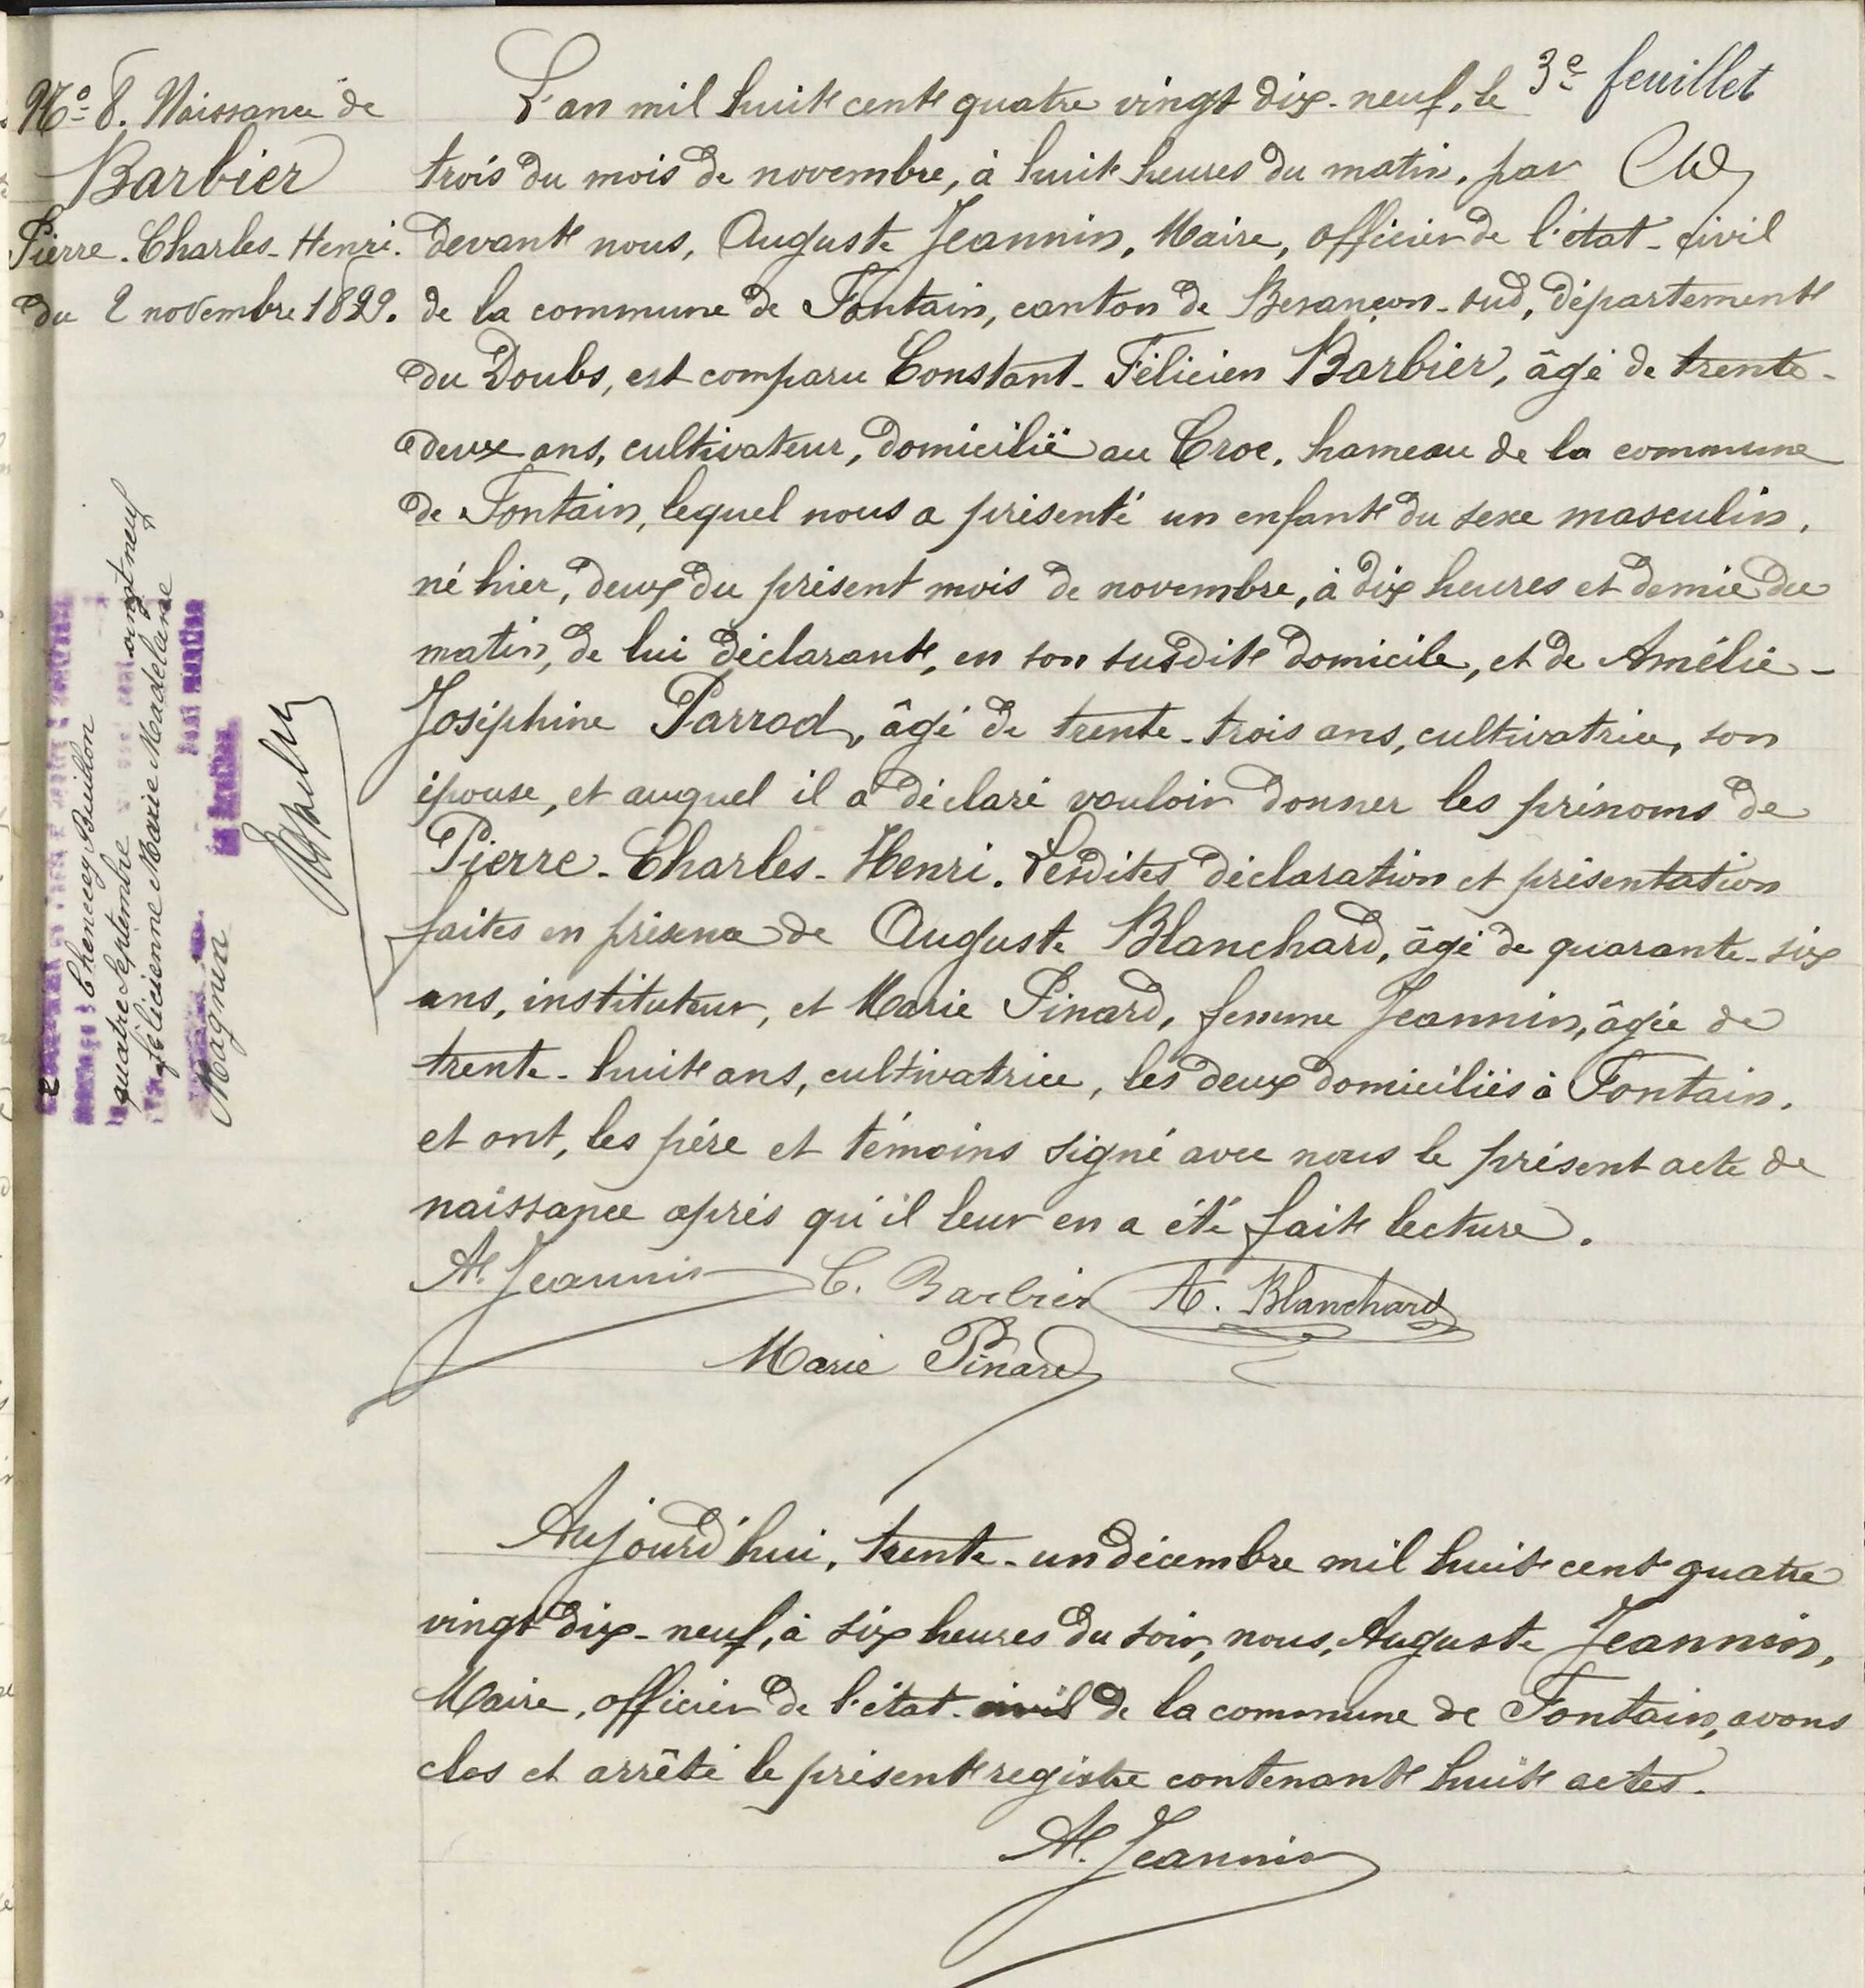 3e feuillet
No 8. Naissance de
Barbier
Pierre-Charles-Henri.
du 2 novembre 1899.
L'an mil huit cent quatre vingt dix-neuf, le
trois du mois de novembre, à huit heures du matin, par
devant nous, Auguste Jeannin, Maire, officier de l'état-civil
de la commune de Fontain, canton de Besançon-sud, département
du Doubs, est comparu Constant-Félicien Barbier, âgé de trente-
deux ans, cultivateur, domicilié au Croc, hameau de la commune
de Fontain, lequel nous a présenté un enfant du sexe masculin,
né hier, deux du présent mois de novembre, à dix heures et demie du
matin, de lui déclarant, en son susdit domicile, et de Amélie-
Joséphine Parrod, âgé de trente-trois ans, cultivatrice, son
épouse, et auquel il a déclaré vouloir donner les prénoms de
Pierre-Charles-Henri. Lesdites déclaration et présentation
faites en présence de Auguste Blanchard, âgé de quarante-six
ans, instituteur, et Marie Pinard, femme Jeannin, âgée de
trente-huit ans, cultivatrice, les deux domiciliés à Fontain,
et ont, les père et témoins signé avec nous le présent acte de
naissance après qu'il leur en a été fait lecture.
A. Jeannin C. Barbier A. Blanchard
Marie Pinard
Chenecey Buillon
quatre Septembre
vingt neuf
félicienne Marie Marie Madelaine
Magnin
Aujourd'hui, trente-un décembre mil huit cent quatre
vingt dix-neuf, à six heures du soir, nous, Auguste Jeannin,
Maire, officier de l'état-civil de la commune de Fontain, avons
clos et arrêté le présent registre contenant huit actes.
A. Jeannin